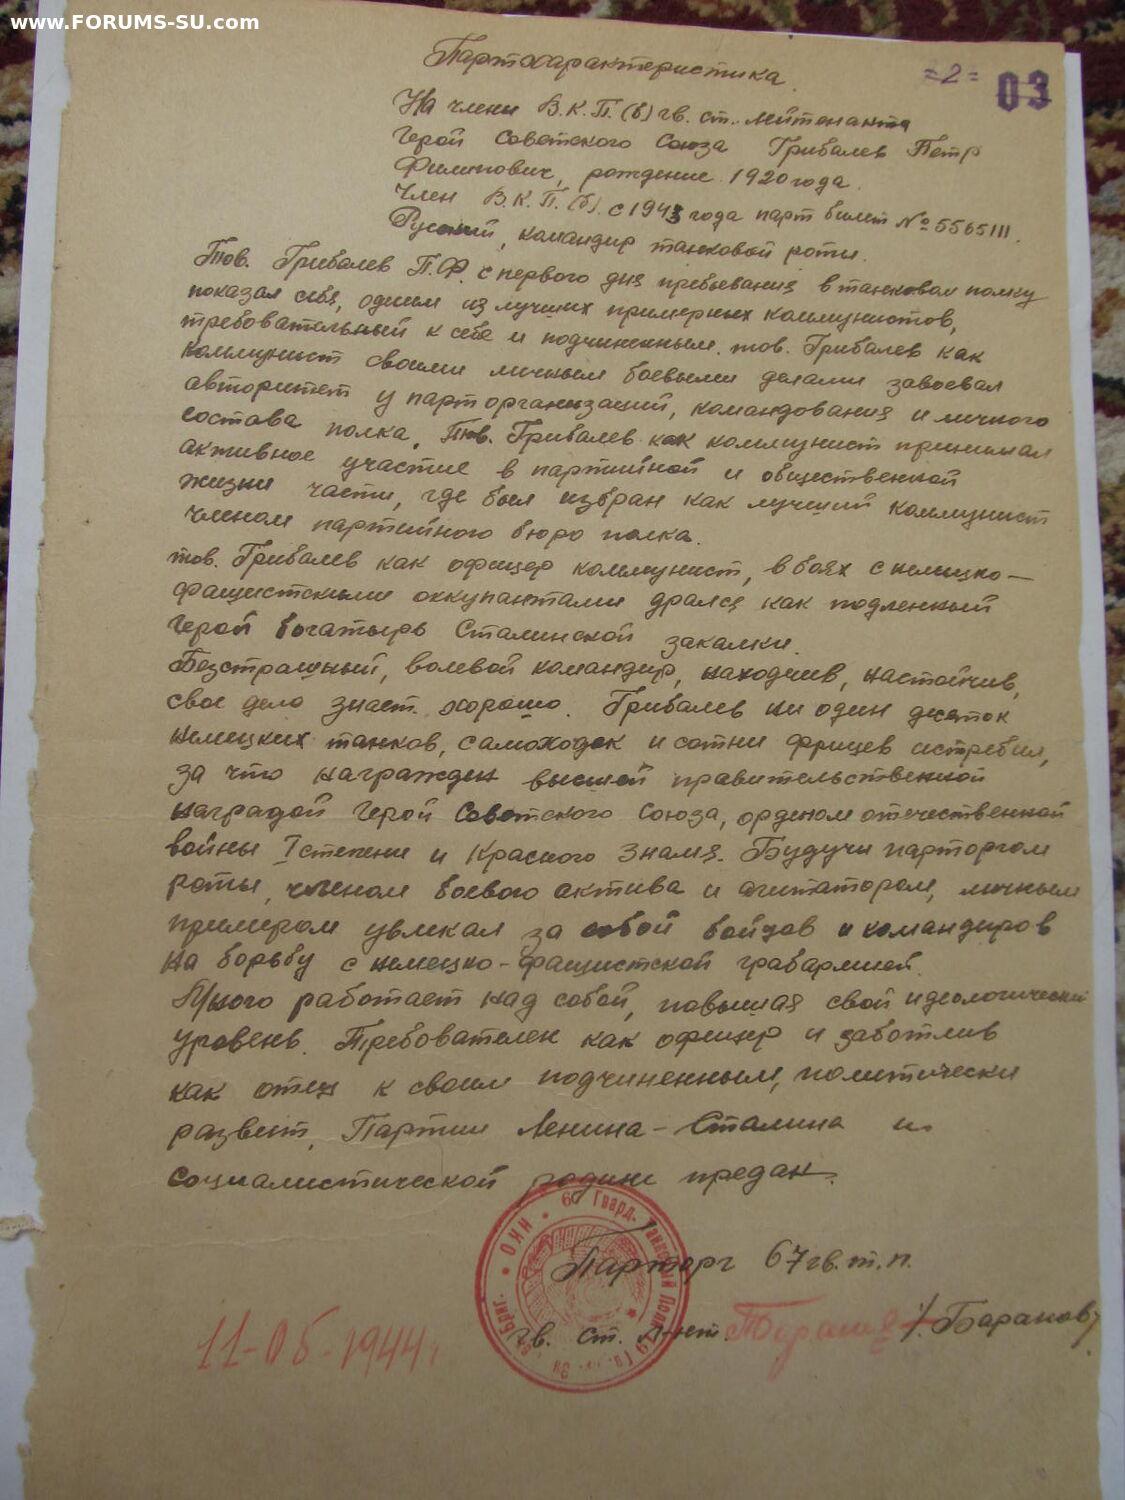 www.FORUMS-SU.com
=2= 03
Партхарактеристика.
На члена В.К.П.(б) гв. ст. лейтенанта
Герой Советского Союза Грибалев Петр
Филипович, рождение 1920 года.
Член В.К.П.(б). с 1943 года парт билет № 5565111.
Русский, командир танковой роты.
Тов. Грибалев П.Ф. с первого дня пребывания в танковом полку
показал себя, одним из лучших примерных коммунистов,
требовательный к себе и подчиненным. тов. Грибалев как
коммунист своими личным боевыми делами завоевал
авторитет у парторганизаций, командования и личного
состава полка. Тов. Грибалев как коммунист принимал
активное участие в партийной и общественной
жизни части, где был избран как лучший коммунист
членом партийного бюро полка.
тов. Грибалев как офицер коммунист, в боях с немецко-
фашистскими оккупантами дрался как подленный
Герой богатырь Сталинской закалки.
Безстрашный, волевой командир, находчив, настойчив,
свое дело знает хорошо. Грибалев ни один десяток
немецких танков, самоходок и сотни фрицев истребил,
за что награжден высшей правительственной
наградой Герой Советского Союза, орденом отечественной
войны I степени и Красного Знамя. Будучи парторгом
роты, членом боевого актива и агитатором, личным
примером увлекал за собой бойцов и командиров
на борьбу с немецко-фашистской грабармией.
Много работает над собой, повышая свой идеологический
уровень. Требователен как офицер и заботлив
как отец к своим подчиненным, политически
развит. Партии Ленина-Сталина и
социалистической родине предан.
Парторг 67 гв.т.п.
гв. ст. л-нт. /Баранов/
11-05-1944г.
НКО • 67 Гвард. Танковый Полк